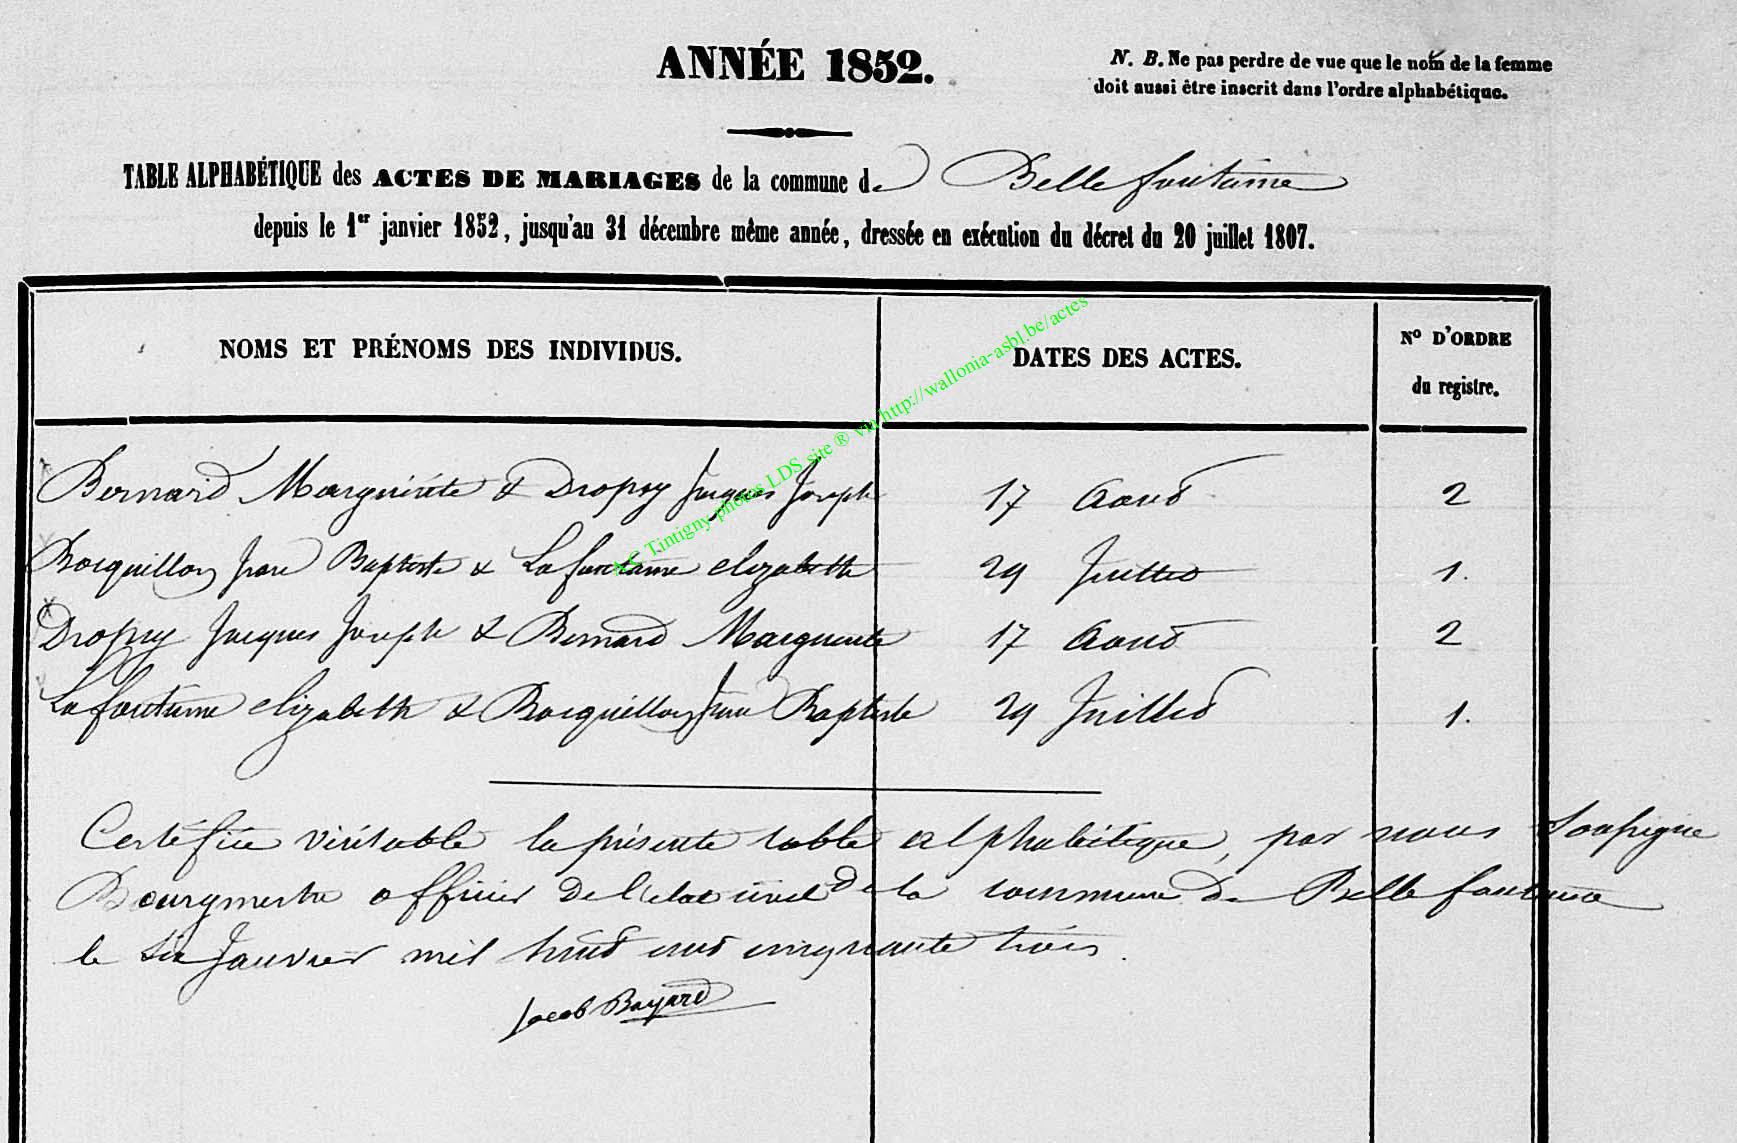 ANNÉE 1852.
N. B. Ne pas perdre de vue que le nom de la femme
doit aussi être inscrit dans l'ordre alphabétique.
TABLE ALPHABÉTIQUE des ACTES DE MARIAGES de la commune de Bellefontaine
depuis le 1er janvier 1852, jusqu'au 31 décembre même année, dressée en exécution du décret du 20 juillet 1807.
NOMS ET PRÉNOMS DES INDIVIDUS. DATES DES ACTES. No D'ORDRE
du registre.
AC Tintigny photos LDS site ® via http://wallonia-asbl.be/actes
Bernard Margueritte & Dropsy Jacques Joseph 17 Aout 2
Bocquillon Jean Baptiste & Lafontaine elizabeth 29 Juillet 1.
Dropsy Jacques Joseph & Bernard Marguerite 17 Aout 2
Lafontaine elizabeth & Bocquillon Jean Baptiste 29 Juillet 1.
Certifiée véritable la présente table alphabétique, par nous Soussigné
Bourgmestre officier de l'etat civil de la commune de Bellefontaine
le six Janvier mil huit cent cinquante trois.
Jacob Bayard